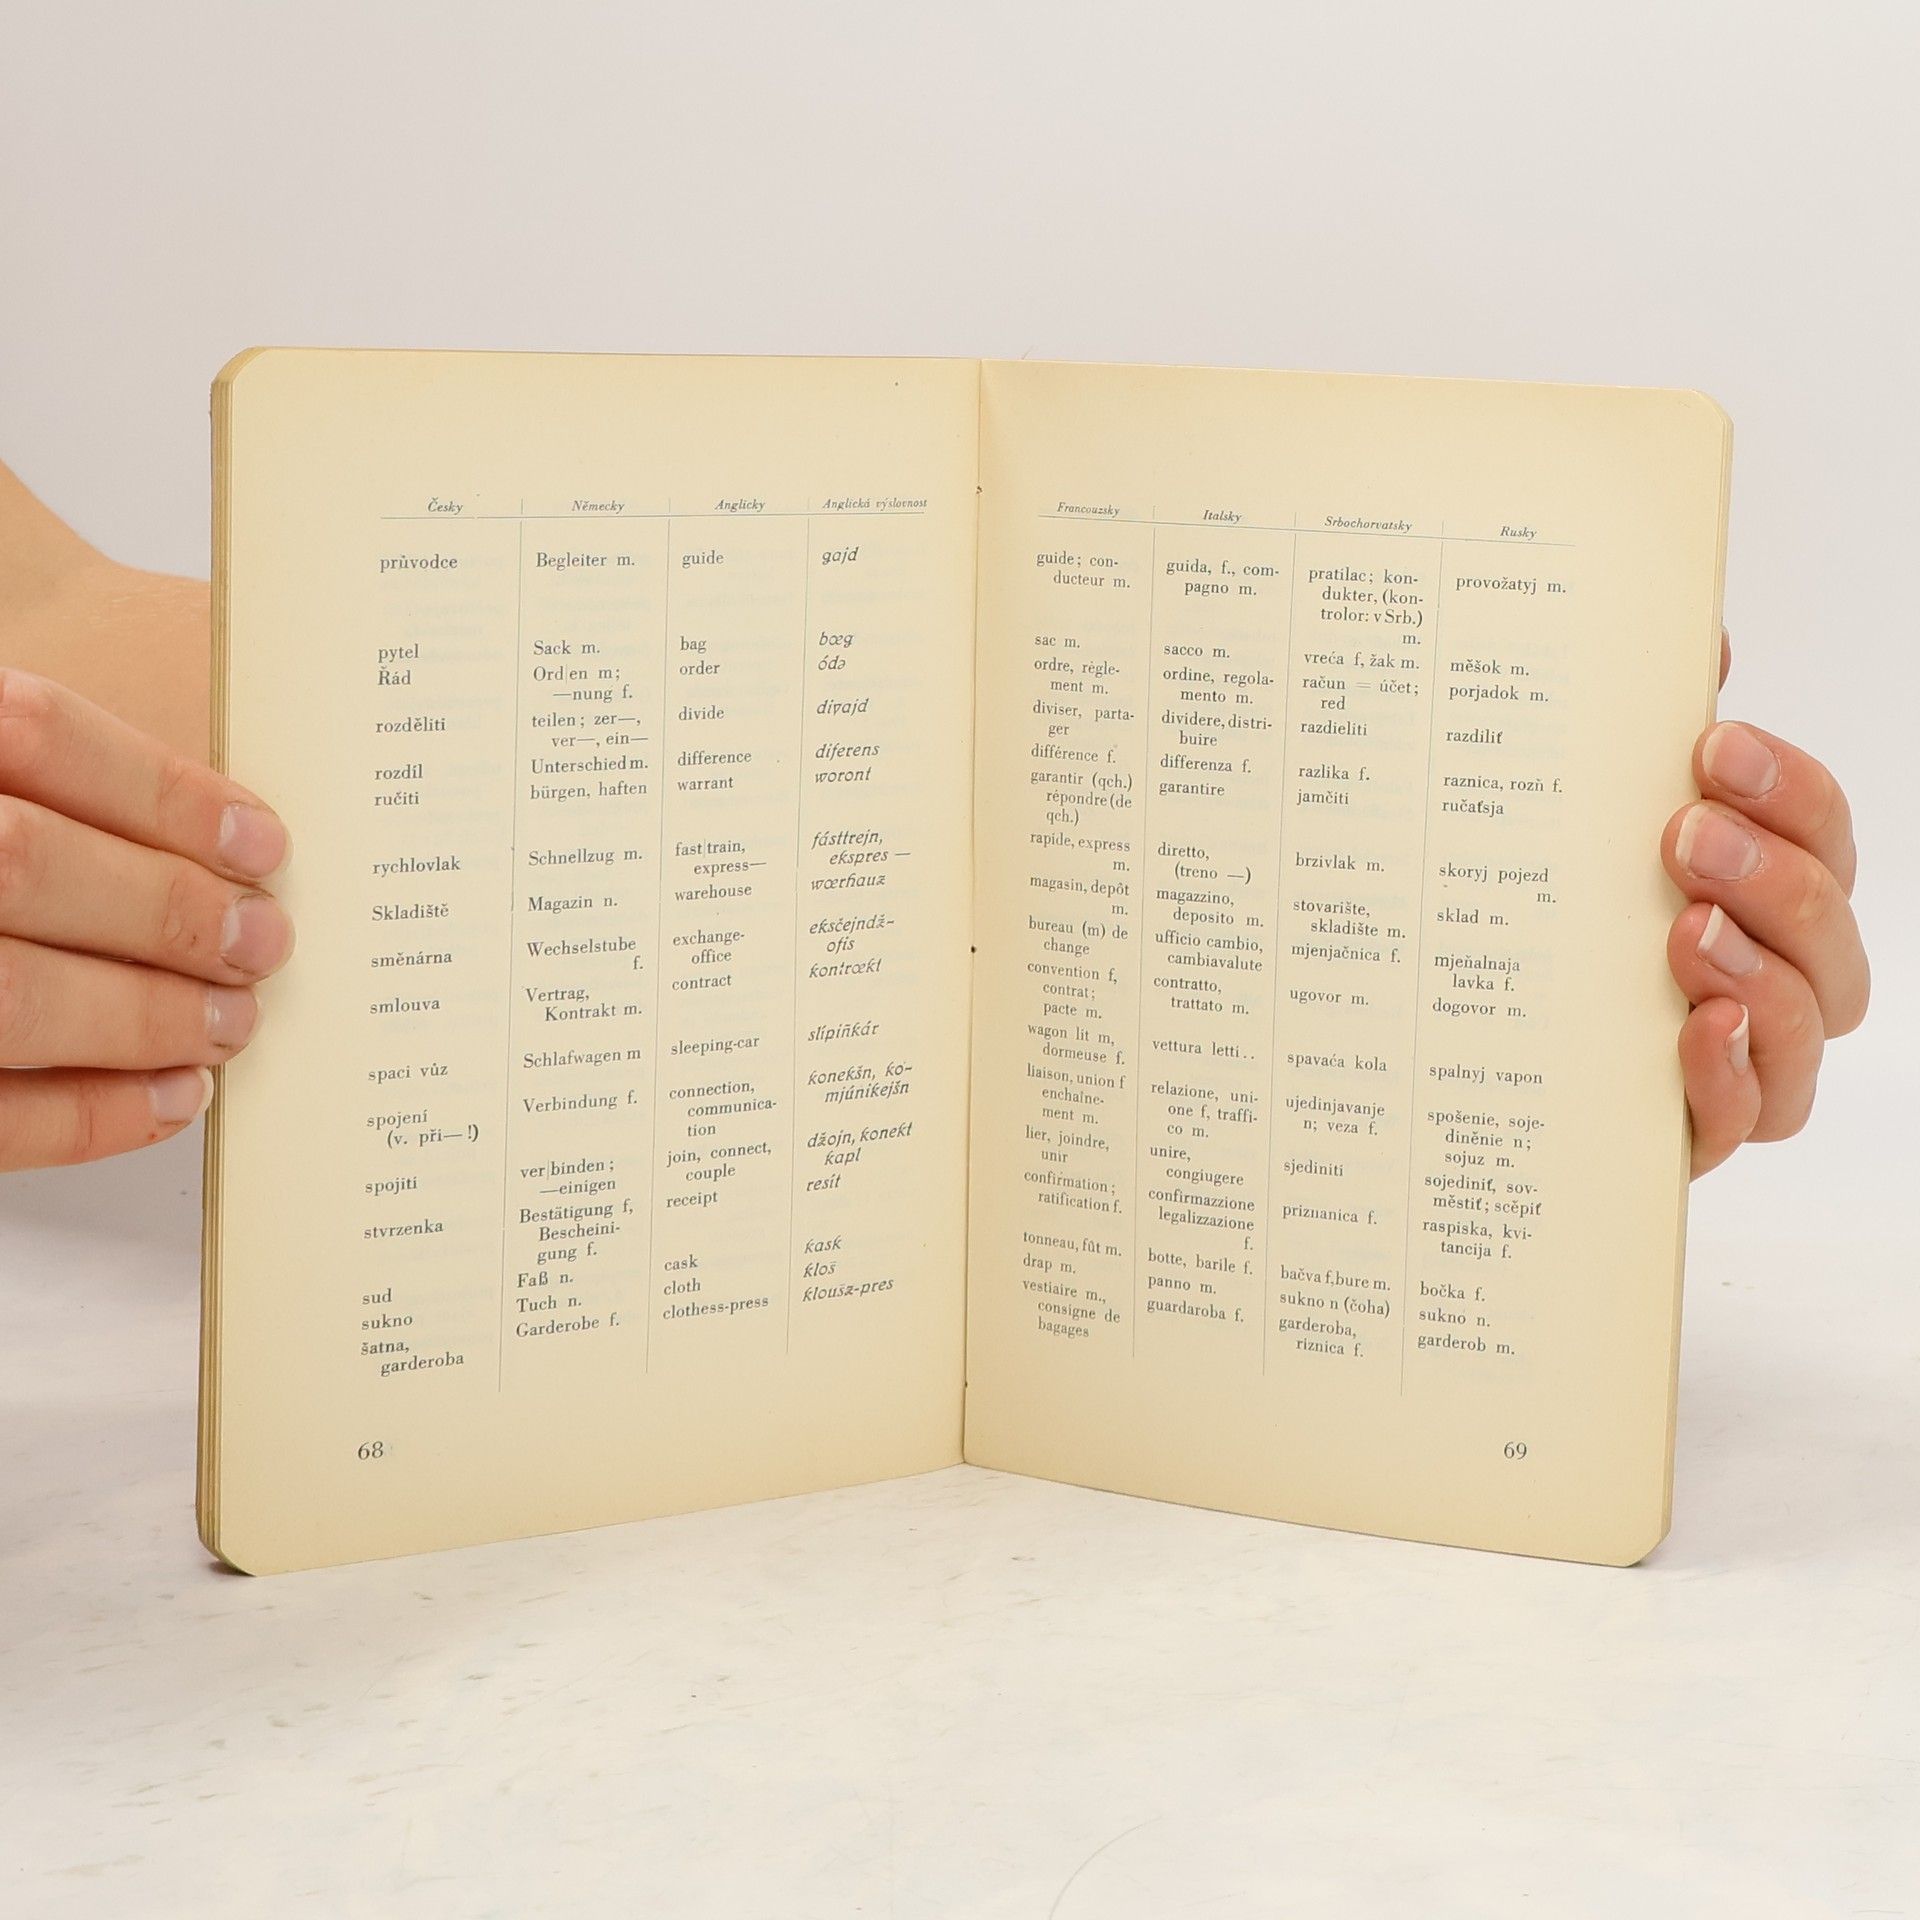 Česky
průvodce
pytel
Řád
rozděliti
rozdíl
ručiti
rychlovlak
Skladiště
směnárna
smlouva
spaci vůz
spojení
(v. při— !)
spojiti
stvrzenka
sud
sukno
šatna,
garderoba
Německy
Begleiter m.
Sack m.
Ord|en m;
—nung f.
teilen; zer—,
ver—, ein—
Unterschied m.
bürgen, haften
Schnellzug m.
Magazin n.
Wechselstube
f.
Vertrag,
Kontrakt m.
Schlafwagen m
Verbindung f.
ver|binden;
—einigen
Bestätigung f,
Bescheini-
gung f.
Faß n.
Tuch n.
Garderobe f.
Anglicky
guide
bag
order
divide
difference
warrant
fast|train,
express—
warehouse
exchange-
office
contract
sleeping-car
connection,
communica-
tion
join, connect,
couple
receipt
cask
cloth
clothess-press
Anglická výslovnost
gajd
bœg
ódə
divajd
diferens
woront
fásttrejn,
ekspres —
wœrhauz
eksčejndž-
ofis
kontrœkt
slípiňkár
konekšn, ko-
mjúnikejšn
džojn, konekt
kapl
resít
kask
kloš
kloušz-pres
68
Francouzsky
guide; con-
ducteur m.
sac m.
ordre, règle-
ment m.
diviser, parta-
ger
différence f.
garantir (qch.)
répondre (de
qch.)
rapide, express
m.
magasin, depôt
m.
bureau (m) de
change
convention f,
contrat;
pacte m.
wagon lit m,
dormeuse f.
liaison, union f
enchaîne-
ment m.
lier, joindre,
unir
confirmation;
ratification f.
tonneau, fût m.
drap m.
vestiaire m.,
consigne de
bagages
Italsky
guida, f., com-
pagno m.
sacco m.
ordine, regola-
mento m.
dividere, distri-
buire
differenza f.
garantire
diretto,
(treno —)
magazzino,
deposito m.
ufficio cambio,
cambiavalute
contratto,
trattato m.
vettura letti..
relazione, uni-
one f, traffi-
co m.
unire,
congiugere
confirmazzione
legalizzazione
f.
botte, barile f.
panno m.
guardaroba f.
Srbochorvatsky
pratilac; kon-
dukter, (kon-
trolor: v Srb.)
m.
vreća f, žak m.
račun = účet;
red
razdieliti
razlika f.
jamčiti
brzivlak m.
stovarište,
skladište m.
mjenjačnica f.
ugovor m.
spavaća kola
ujedinjavanje
n; veza f.
sjediniti
priznanica f.
bačva f, bure m.
sukno n (čoha)
garderoba,
riznica f.
Rusky
provožatyj m.
měšok m.
porjadok m.
razdiliť
raznica, rozň f.
ručaťsja
skoryj pojezd
m.
sklad m.
mjeňalnaja
lavka f.
dogovor m.
spalnyj vapon
spošenie, soje-
diněnie n;
sojuz m.
sojediniť, sov-
městiť; scěpiť
raspiska, kvi-
tancija f.
bočka f.
sukno n.
garderob m.
69